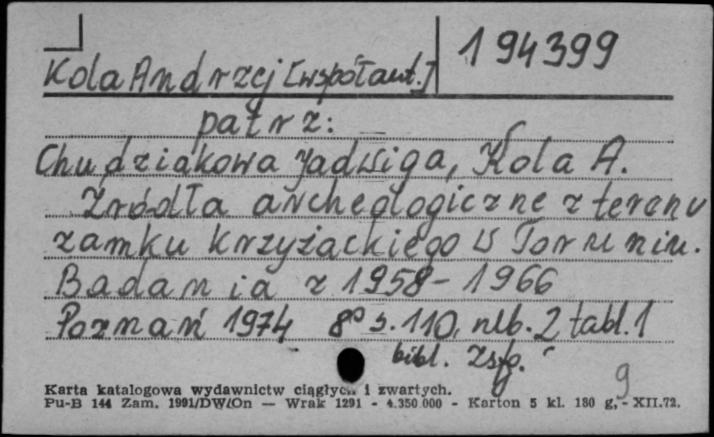 194399
Kola Andrzej [współaut.]
patrz:
Chudziakowa Jadwiga, Kola A.
Źródła archeologiczne z terenu
zamku krzyżackiego w Toruniu.
Badania z 1958-1966
Poznań 1974 8º s.110, nlb.2 tabl.1
bibl. Zsfg.
9
Karta katalogowa wydawnictw ciągłych i zwartych.
Pu-B 144 Zam. 1991/DW/On — Wrak 1291 - 4.350.000 - Karton 5 kl. 180 g, - XII.72.